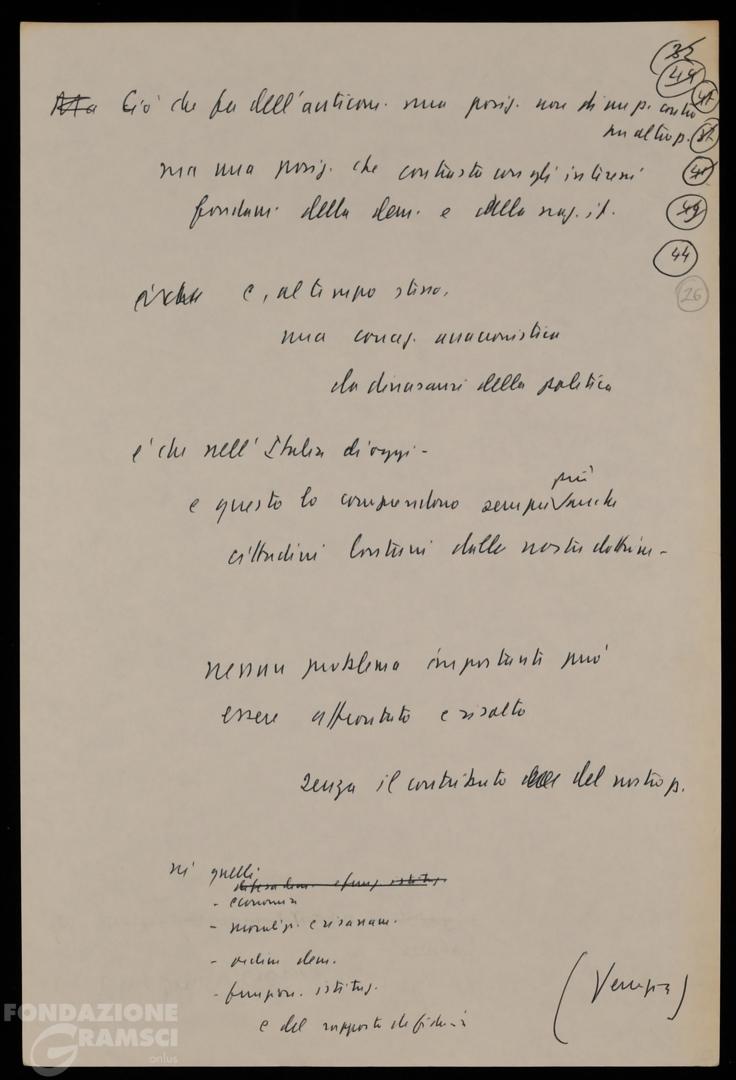 32
44
Ma Ciò che fa dell'anticom. una posiz. non di un p. contro
un altro p.
41
32
ma una posiz. che contrasta con gli interessi
41
fondam. della dem. e della naz. it.
49
44
26
e, al tempo stesso,
una concez. anacronistica
della politica
è che nell'Italia di oggi -
e questo lo comprendono sempre più anche
cittadini lontani dalla nostra dottrina -
nessun problema importante può
essere affrontato e risolto
senza il contributo del nostro p.
né quelli
- economia
- moralizz. e risanam.
- ordine dem.
- funzion. istituz.
e del rapporto di fiducia
(Venezia)
FONDAZIONE
GRAMSCI
onlus